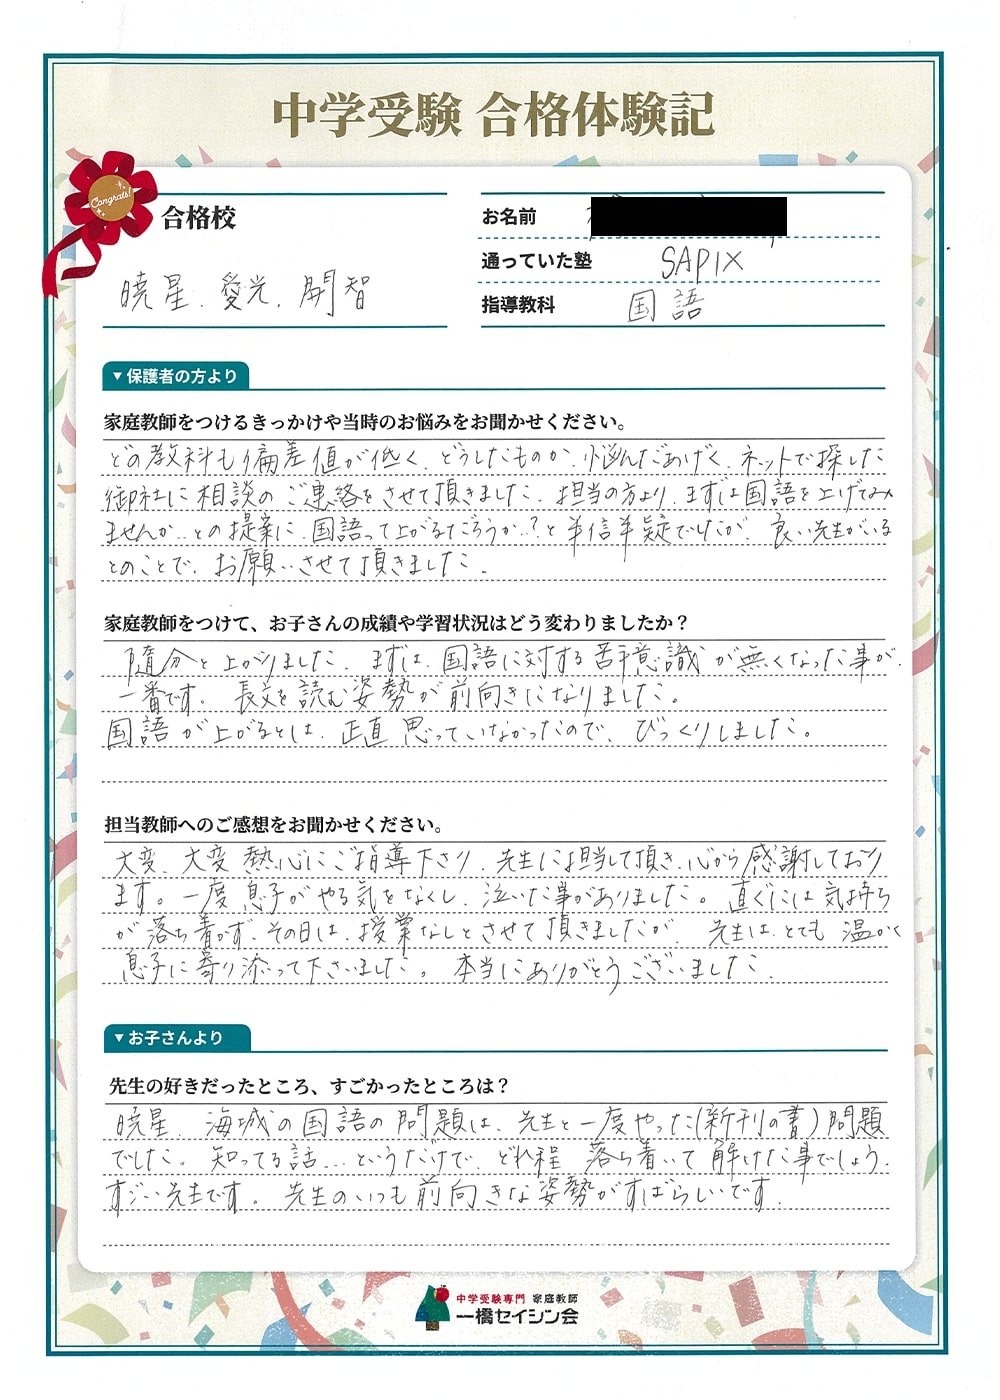 中学受験 合格体験記
Congrats!
合格校
暁星、愛光、開智
お名前
通っていた塾 SAPIX
指導教科 国語
▼保護者の方より
家庭教師をつけるきっかけや当時のお悩みをお聞かせください。
どの教科も偏差値が低く、どうしたものか、悩んだあげく、ネットで探した
御社に相談のご連絡をさせて頂きました。担当の方より、まずは国語を上げてみ
ませんか…との提案に、国語って上がるだろうか…?と半信半疑でしたが、良い先生がいる
とのことで、お願いさせて頂きました。
家庭教師をつけて、お子さんの成績や学習状況はどう変わりましたか？
随分と上がりました。まずは、国語に対する苦手意識が無くなった事が、
一番です。長文を読む姿勢が前向きになりました。
国語が上がるとは、正直思っていなかったので、びっくりしました。
担当教師へのご感想をお聞かせください。
大変、大変熱心にご指導下さり、先生に担当して頂き、心から感謝しており
ます。一度息子がやる気をなくし、泣いた事がありました。直ぐには気持ち
が落ち着かず、その日は、授業なしとさせて頂きましたが、先生は、とても温かく
息子に寄り添って下さいました。本当にありがとうございました。
▼お子さんより
先生の好きだったところ、すごかったところは？
暁星 海城の国語の問題は、先生と一度やった(新刊の書)問題
でした。知ってる話…というだけで、どれ程落ち着いて解けた事でしょう。
すごい先生です。先生のいつも前向きな姿勢がすばらしいです。
中学受験専門 家庭教師
一橋セイシン会